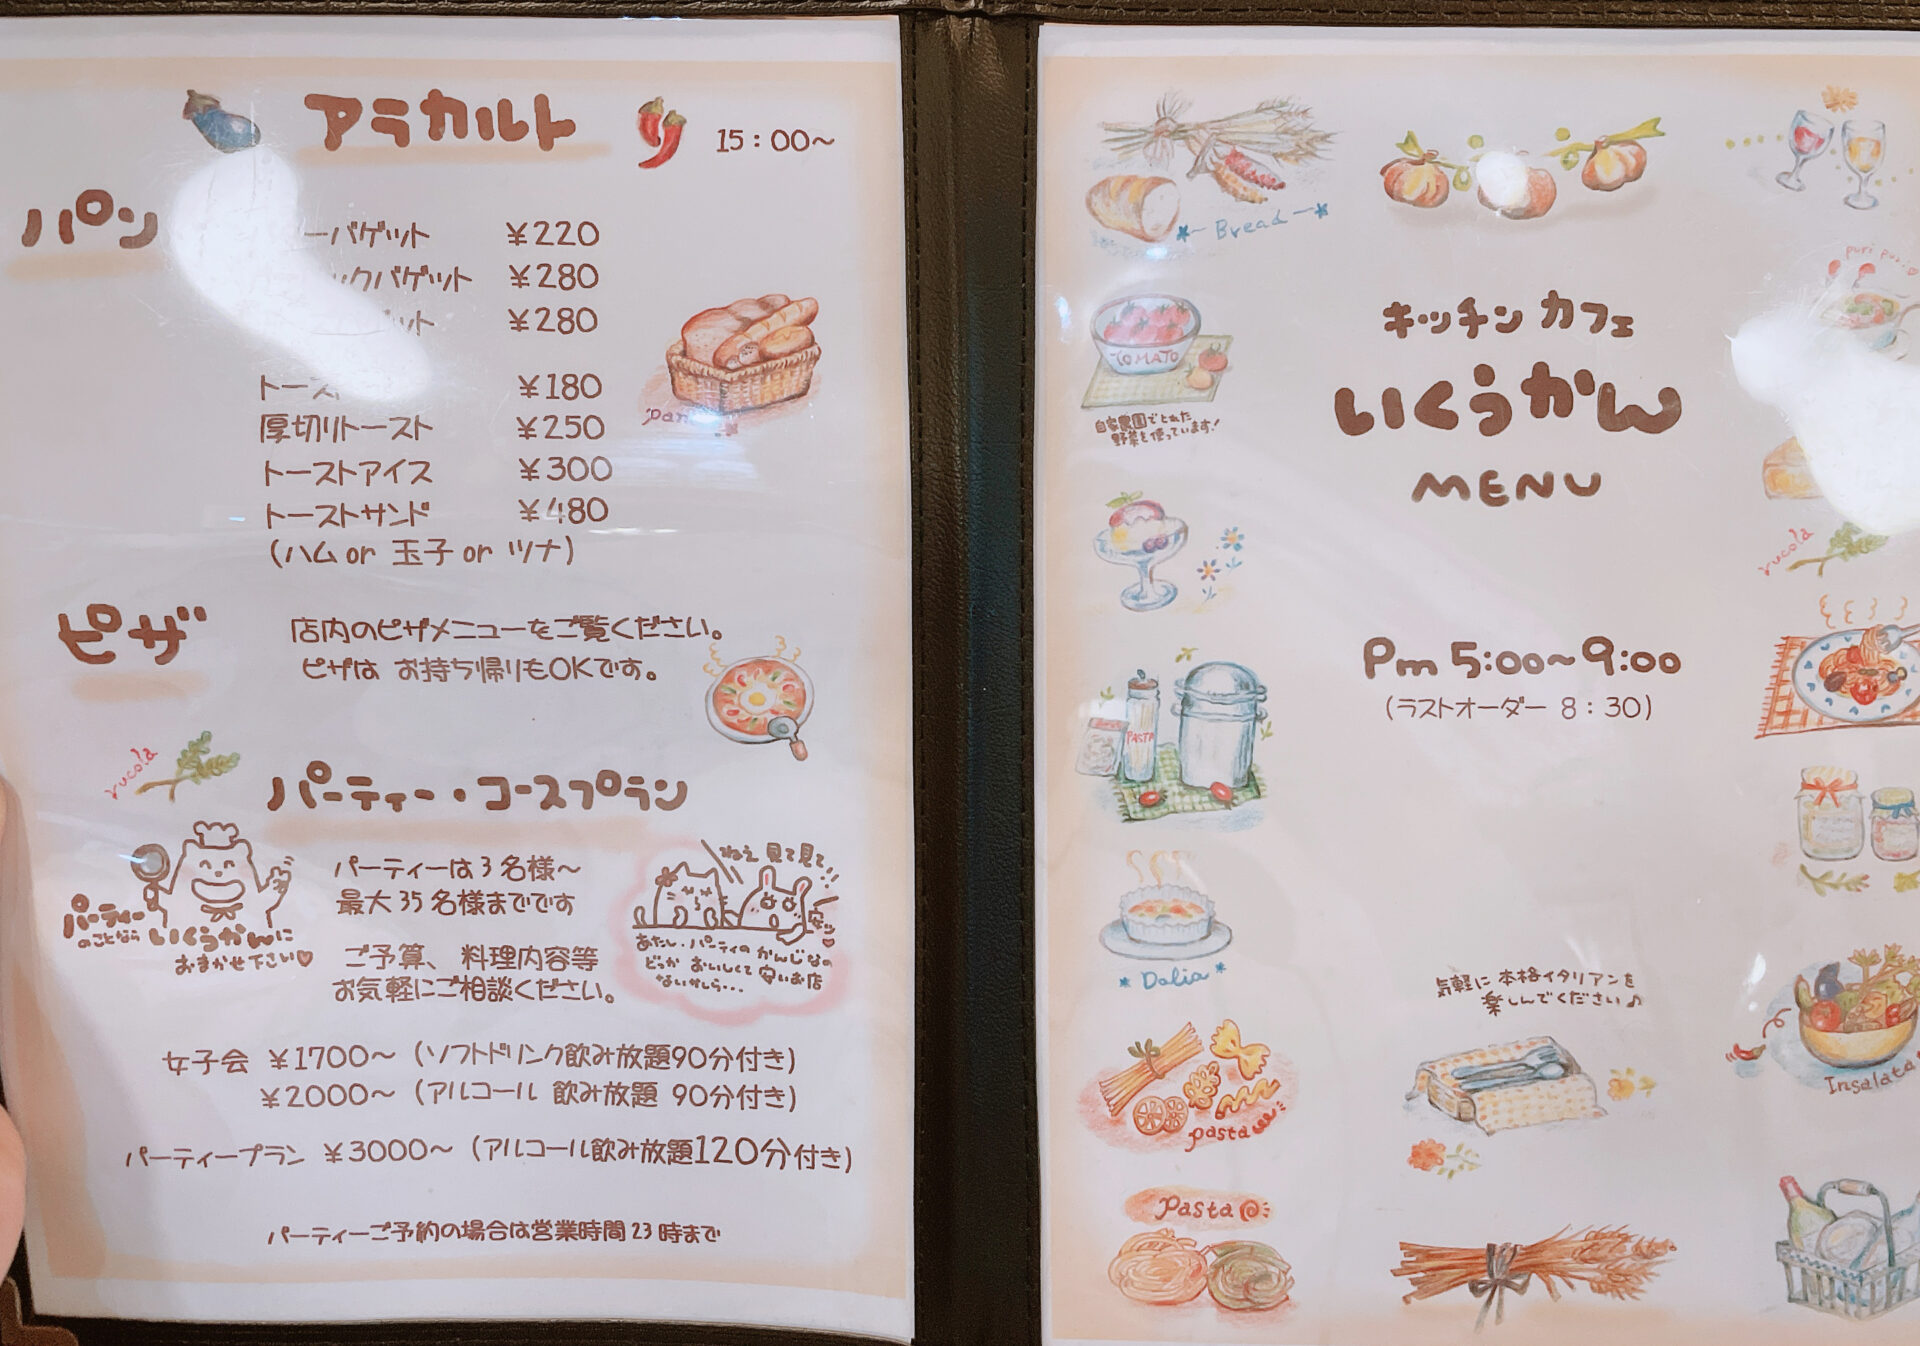 アラカルト
15：00～
パン
ーバゲット ￥220
ックバゲット ￥280
ット ￥280
トース ￥180
厚切りトースト ￥250
トーストアイス ￥300
トーストサンド ￥480
(ハム or 玉子 or ツナ)
pan
ピザ
店内のピザメニューをご覧ください。
ピザは お持ち帰りもOKです。
rucola
パーティー・コースプラン
パーティーは3名様～
最大35名様までです
ご予算、料理内容等
お気軽にご相談ください。
パーティー
のことなら いくうかんに
おまかせ下さい♡
ねぇ 見て見て!!
あたし・パーティの かんじなの
どっか おいしくて 安いお店
ないかしら・・・
女子会 ￥1700～ (ソフトドリンク飲み放題90分付き)
￥2000～ (アルコール 飲み放題 90分付き)
パーティープラン ￥3000～ (アルコール飲み放題120分付き)
パーティーご予約の場合は営業時間23時まで
Bread
puri puri
キッチン カフェ
いくうかん
MENU
TOMATO
自家農園でとれた
野菜を使っています！
rucola
Pm 5:00～9:00
(ラストオーダー 8：30)
PASTA
Dolia
気軽に 本格イタリアンを
楽しんでください♪
Insalata
pasta
Pasta